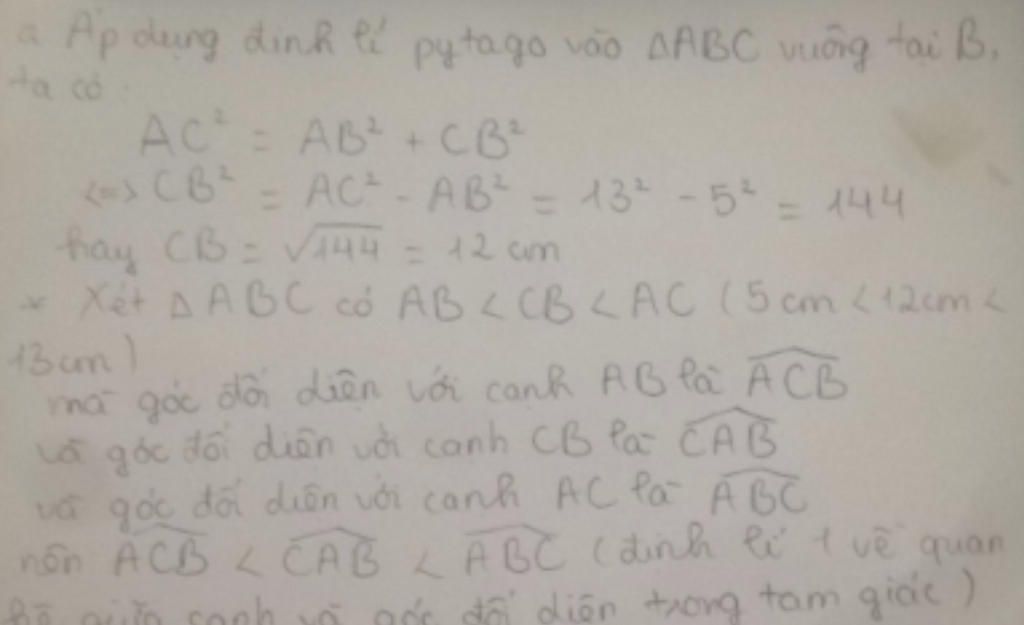 a Áp dụng định lí pytago vào ΔABC vuông tại B,
ta có :
AC² = AB² + CB²
<=> CB² = AC² - AB² = 13² - 5² = 144
hay CB = √144 = 12 cm
* Xét ΔABC có AB < CB < AC (5cm < 12cm <
13cm)
mà góc đối diện với cạnh AB là \widehat{ACB}
và góc đối diện với cạnh CB là \widehat{CAB}
và góc đối diện với cạnh AC là \widehat{ABC}
nên \widehat{ACB} < \widehat{CAB} < \widehat{ABC} (định lí 1 về quan
hệ giữa cạnh và góc đối diện trong tam giác)